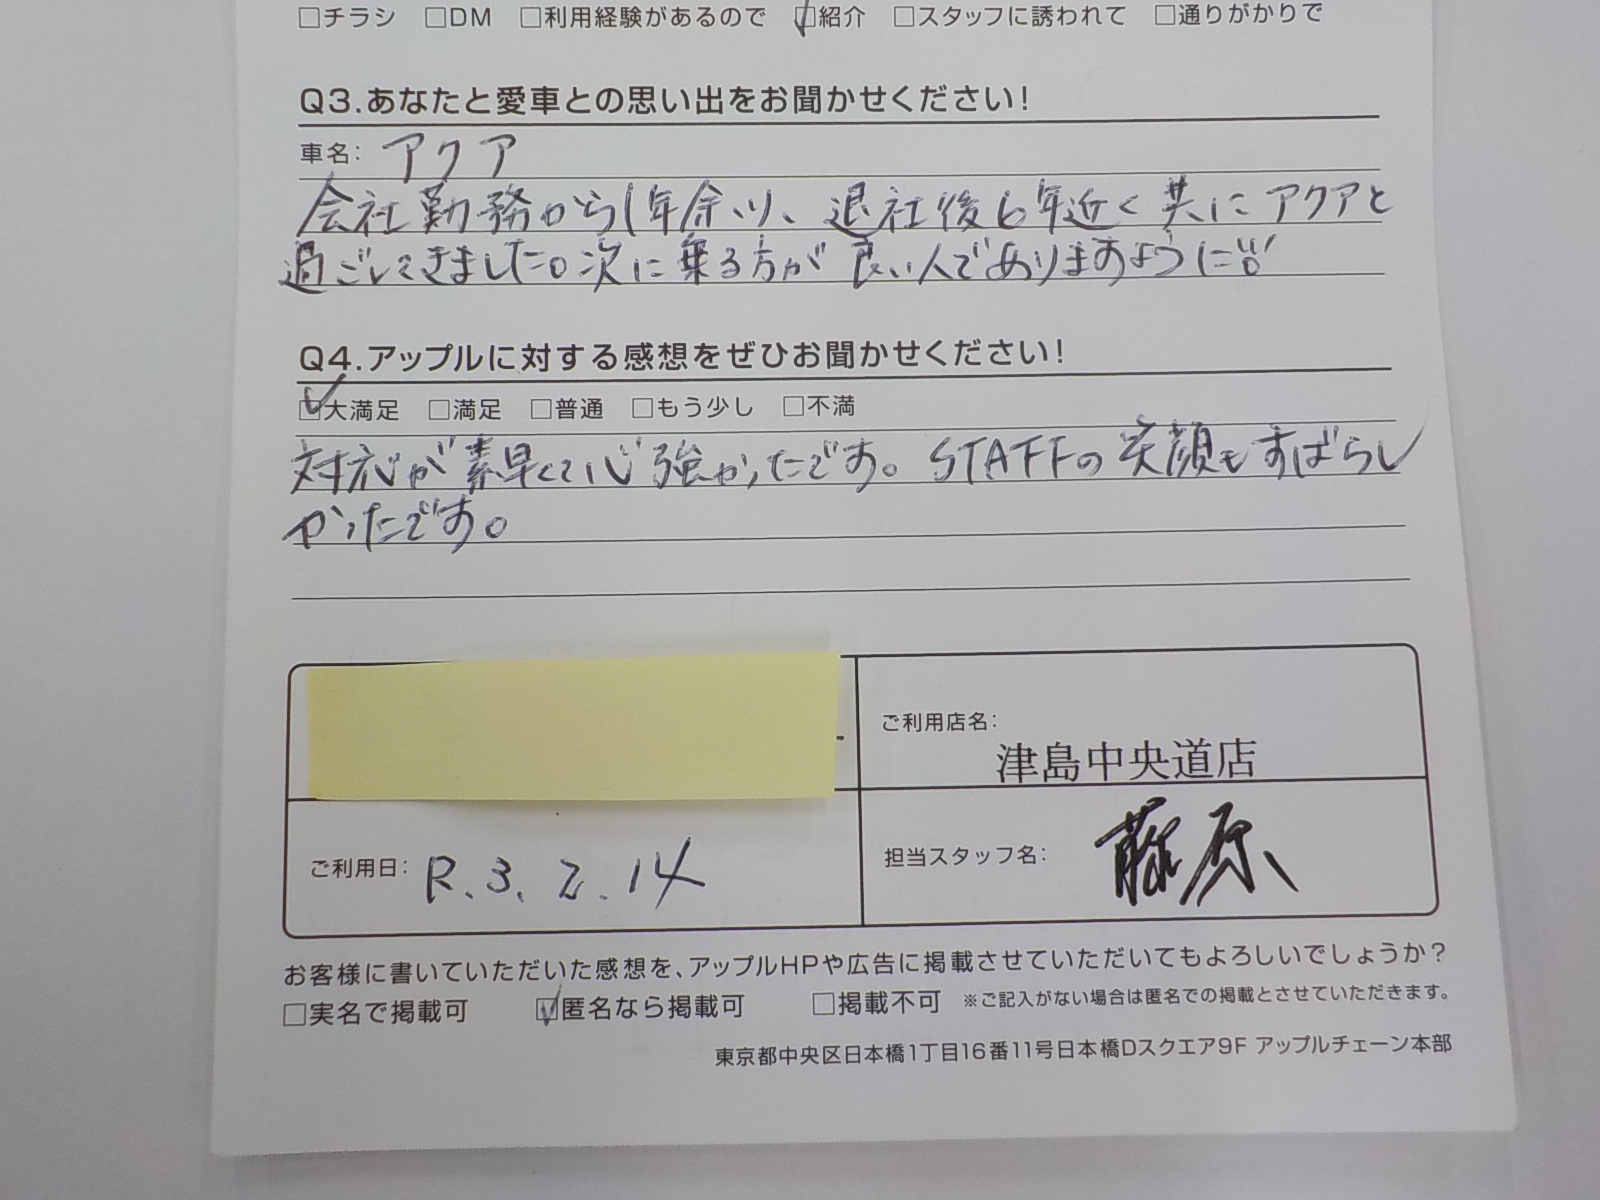 □チラシ □DM □利用経験があるので ☑紹介 □スタッフに誘われて □通りがかりで
Q3.あなたと愛車との思い出をお聞かせください!
車名: アクア
会社勤務から1年余り、退社後6年近く共にアクアと
過ごしてきました。次に乗る方が良い人でありますように!!
Q4.アップルに対する感想をぜひお聞かせください!
☑大満足 □満足 □普通 □もう少し □不満
対応が素早くて心強かったです。STAFFの笑顔もすばらし
かったです。
ご利用店名:
津島中央道店
ご利用日: R.3.2.14
担当スタッフ名: 藤原
お客様に書いていただいた感想を、アップルHPや広告に掲載させていただいてもよろしいでしょうか?
□実名で掲載可 ☑匿名なら掲載可 □掲載不可 ※ご記入がない場合は匿名での掲載とさせていただきます。
東京都中央区日本橋1丁目16番11号日本橋Dスクエア9F アップルチェーン本部